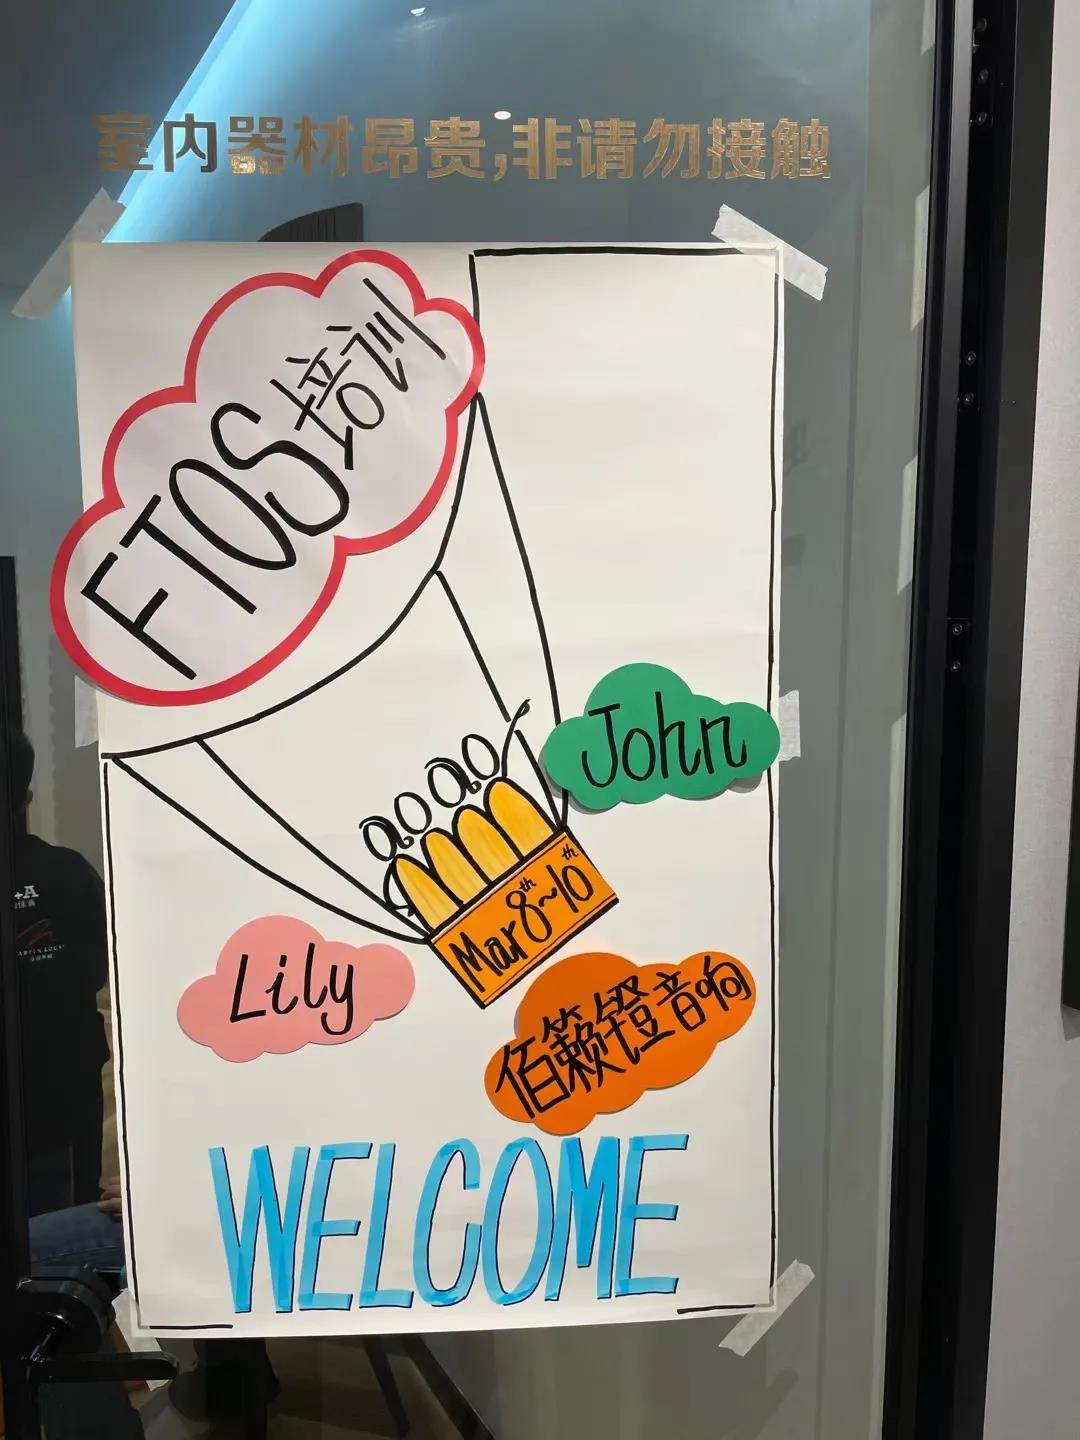 室内器材昂贵,非请勿接触
FTOS培训
John
Mar 8th~10th
Lily
佰籁镫音响
WELCOME
+A